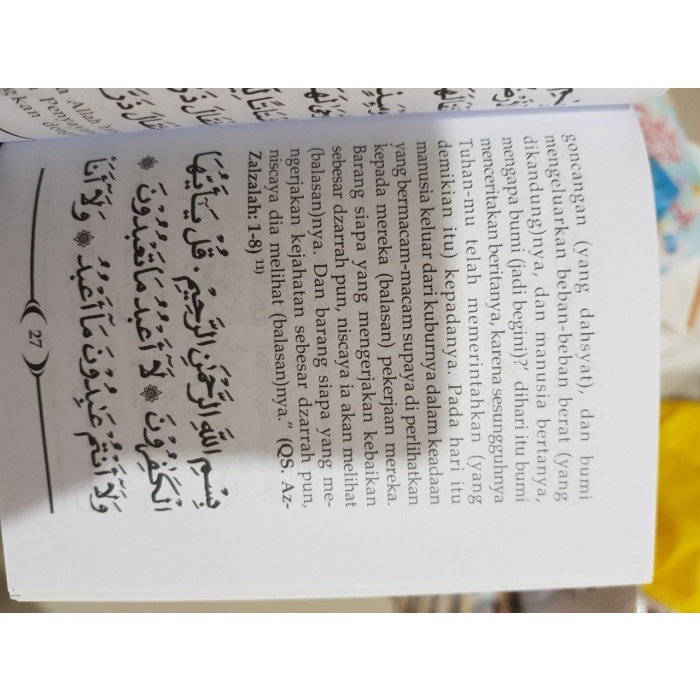 goncangan (yang dahsyat), dan bumi
mengeluarkan beban-beban berat (yang
dikandung)nya, dan manusia bertanya,
mengapa bumi (jadi begini)?' dihari itu bumi
menceritakan beritanya, karena sesungguhnya
Tuhan-mu telah memerintahkan (yang
demikian itu) kepadanya. Pada hari itu
manusia keluar dari kuburnya dalam keadaan
yang bermacam-macam supaya diperlihatkan
kepada mereka (balasan) pekerjaan mereka.
Barang siapa yang mengerjakan kebaikan
sebesar dzarrah pun, niscaya ia akan melihat
(balasan)nya. Dan barang siapa yang me-
ngerjakan kejahatan sebesar dzarrah pun,
niscaya dia melihat (balasan)nya." (QS. Az-
Zalzalah: 1-8) 11)
بِسْمِ اللَّهِ الرَّحْمَنِ الرَّحِيْمِ . قُلْ يَـٰٓأَيُّهَا
الْكَـٰفِرُوْنَ ۞ لَآ أَعْبُدُ مَا تَعْبُدُوْنَ ۞
وَلَآ أَنْتُمْ عَـٰبِدُوْنَ مَآ أَعْبُدُ ۞ وَلَآ أَنَا۠
27